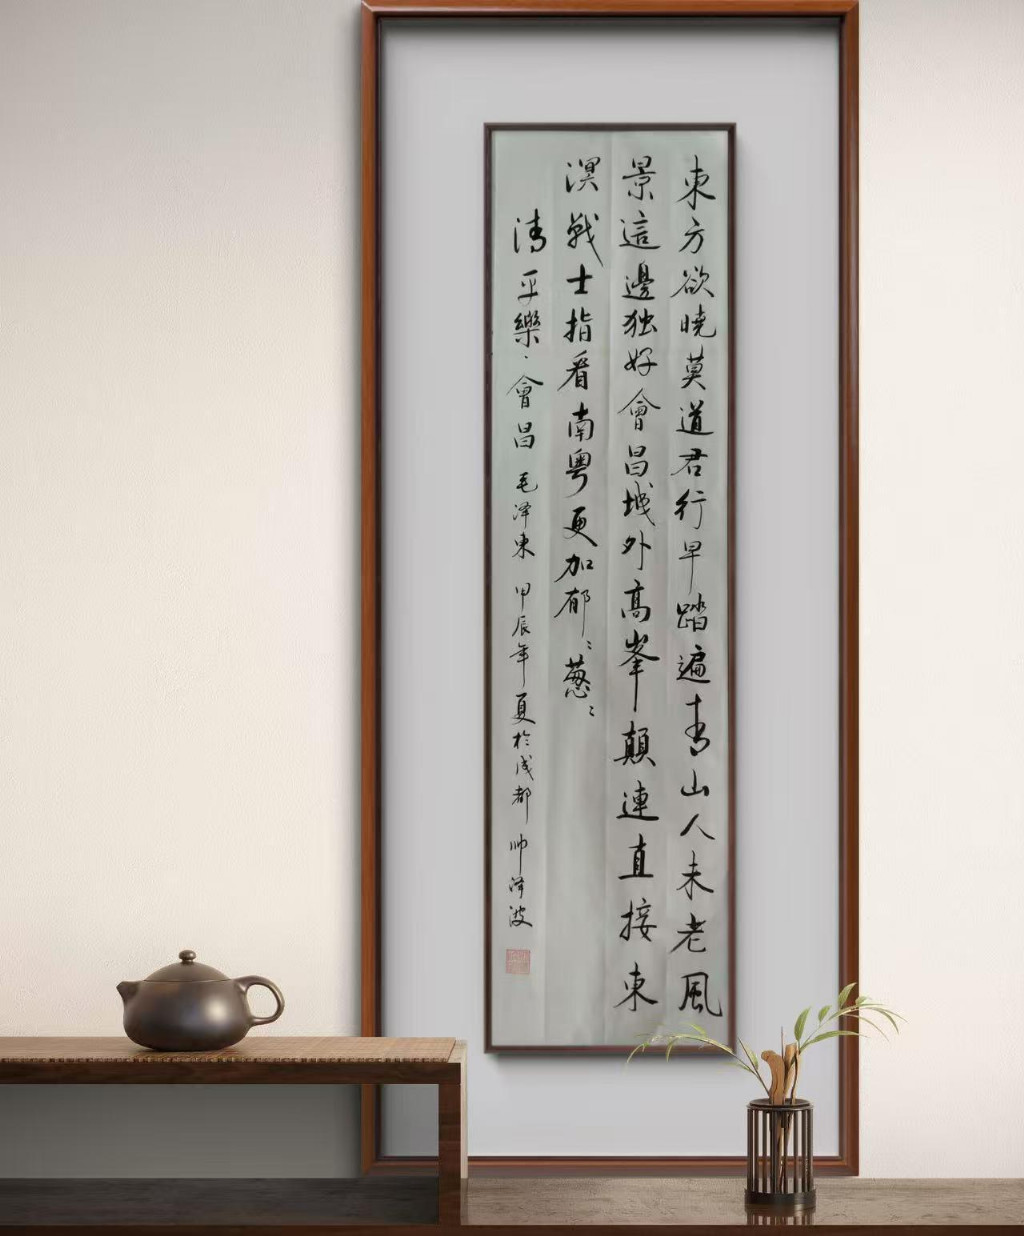 東方欲曉莫道君行早踏遍青山人未老風
景這邊独好會昌城外高峯顛連直接東
溟戰士指看南粵更加郁〻葱〻
清平樂·會昌 毛泽東 甲辰年夏於成都 帅泽波